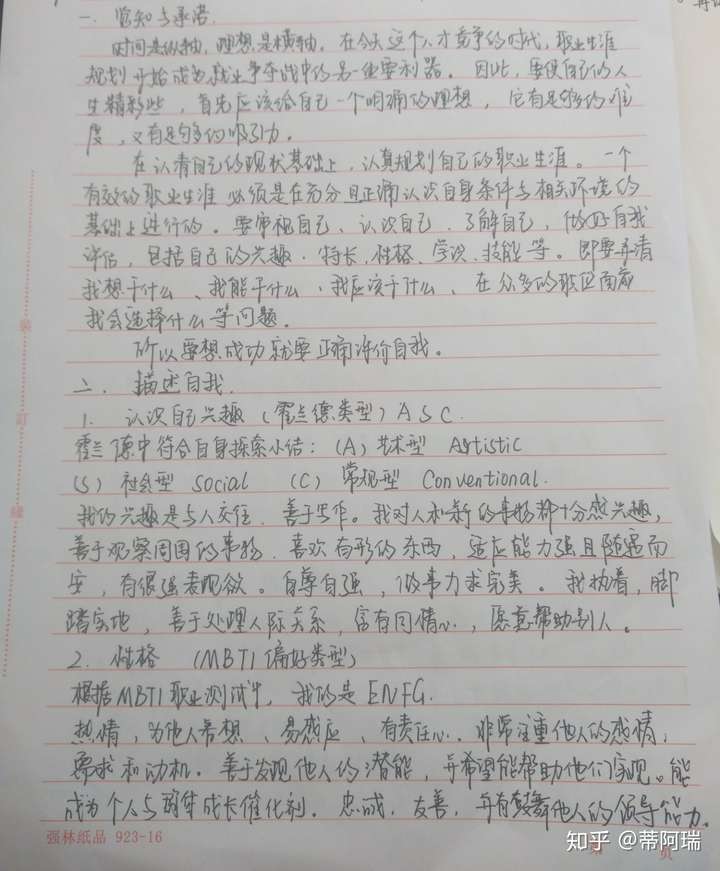 一、觉知与承诺.
时间是纵轴,理想是横轴。在今天这个人才竞争的时代,职业生涯
规划开始成为就业争夺战中的另一重要利器。因此,要使自己的人
生精彩些,首先应该给自己一个明确的理想,它有足够的难
度,又有足够的吸引力。
在认清自己的现状基础上,认真规划自己的职业生涯。一个
有效的职业生涯必须是在充分且正确认识自身条件与相关环境的
基础上进行的。要审视自己、认识自己、了解自己,做好自我
评估,包括自己的兴趣、特长、性格、学识、技能等。即要弄清
我想干什么、我能干什么、我应该干什么、在众多的职业面前
我会选择什么等问题。
所以要想成功就要正确评价自我。
二、描述自我.
1. 认识自己兴趣(霍兰德类型)ASC.
霍兰德中符合自身探索小结:(A)艺术型 Artistic
(S)社会型 Social (C)常规型 Conventional.
我的兴趣是与人交往、善于写作。我对人和新的事物都十分感兴趣,
善于观察周围的事物、喜欢有形的东西,适应能力强且随遇而
安,有很强表现欲。自尊自强,做事力求完美。我执着,脚
踏实地,善于处理人际关系,富有同情心,愿意帮助别人。
2. 性格 (MBTI偏好类型)
根据MBTI职业测试中,我的是ENFG.
热情,为他人着想、易感应、有责任心.非常注重他人的感情,
需求和动机。善于发现他人的潜能,并希望能帮助他们实现。能
成为个人与群体成长催化剂。忠诚,友善,并有鼓舞他人的领导能力.
强林纸品 923-16
页
装
订
线
知乎 @蒂阿瑞